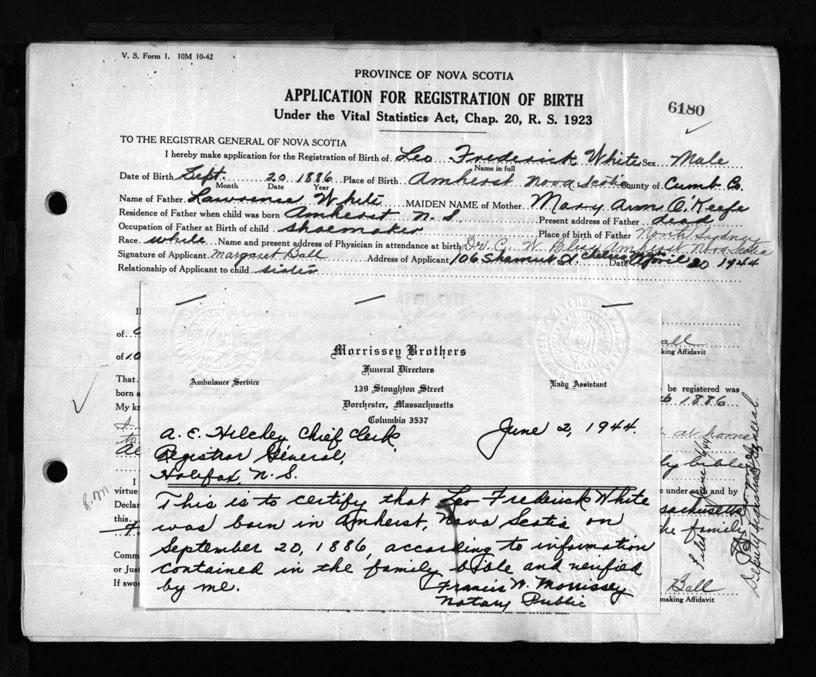 V. S. Form 1. 10M 10-42
PROVINCE OF NOVA SCOTIA
APPLICATION FOR REGISTRATION OF BIRTH
6180
Under the Vital Statistics Act, Chap. 20, R. S. 1923
TO THE REGISTRAR GENERAL OF NOVA SCOTIA
I hereby make application for the Registration of Birth of Leo Frederick White Sex Male
Name in full
Date of Birth Sept. 20 1886 Place of Birth Amherst Nova Scotia County of Cumb Co.
Month Date Year
Name of Father Lawrence White MAIDEN NAME of Mother Mary Ann O'Keefe
Residence of Father when child was born Amherst N. S. Present address of Father dead
Occupation of Father at Birth of child shoemaker Place of birth of Father North Sydney
Race. white Name and present address of Physician in attendance at birth Dr. C. W. Amherst, Nova Scotia
Signature of Applicant Margaret Ball Address of Applicant 106 St. Chelsea Date April 20 1944
Relationship of Applicant to child sister
Morrissey Brothers
Funeral Directors
Ambulance Service 139 Stoughton Street Lady Assistant
Dorchester, Massachusetts
Columbia 3537
A. E. Hilchey, Chief Clerk, June 2, 1944.
Registrar General,
Halifax, N. S.
This is to certify that Leo Frederick White
was born in Amherst, Nova Scotia on
September 20, 1886, according to information
contained in the family bible and verified
by me. Francis W. Morrissey
Notary Public
of
all
of 10
king Affidavit
That
be registered was
born a
1886
My kn
at home
ly bible
I
e under oath and by
virtue
Declar
sachusetts
this
the family
Comm
or Just
Ball
If swor
making Affidavit
R.M.
Deputy Registrar General